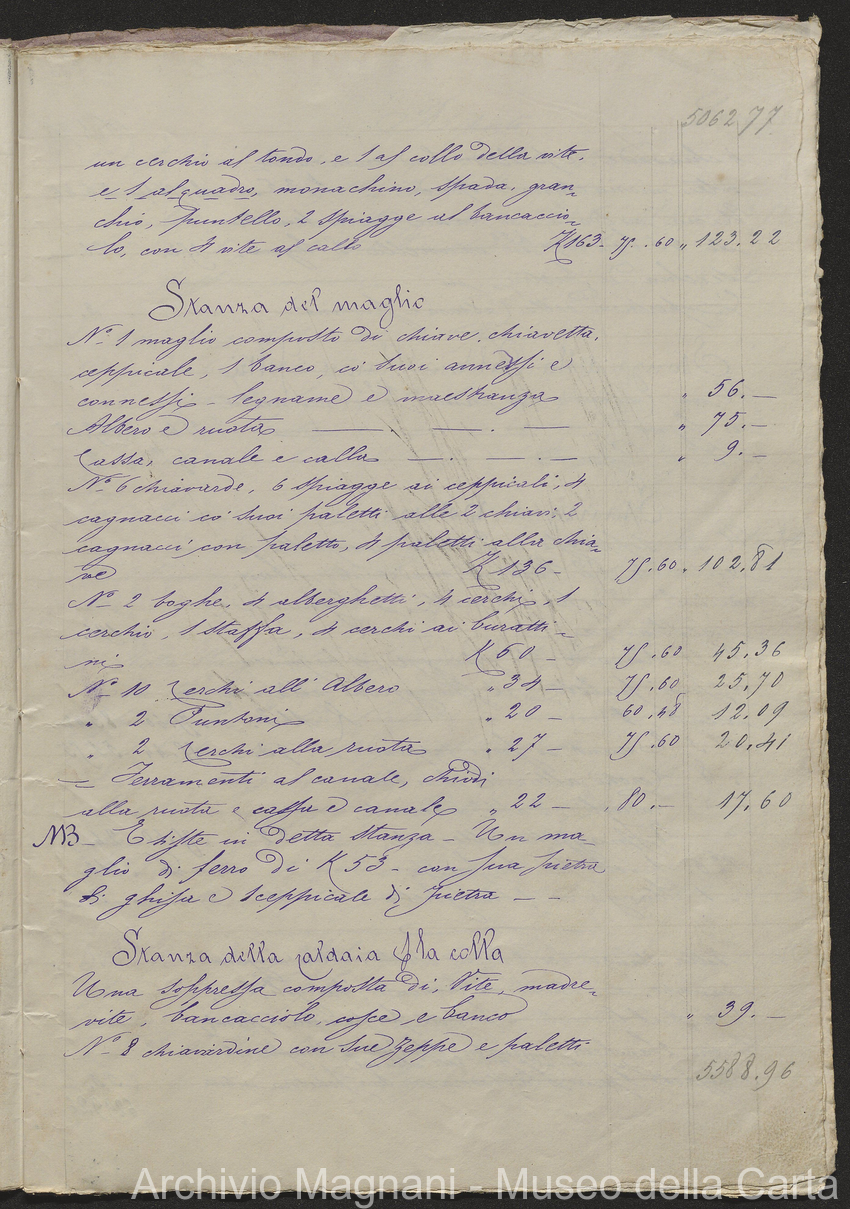 5062 77
un cerchio al tondo, e 1 al collo della vite,
e 1 al quadro, monachino, spada, gran-
chio, puntello, 2 spiagge al bancaccio-
lo, con 4 vite al callo K 163 - 75.60 " 123.22
Stanza del maglio
No. 1 maglio composto di chiave, chiavetta,
ceppicale, 1 banco, co' suoi annessi e
connessi - legname e maestranza " 56.-
Albero e ruota " 75.-
Cassa, canale e calla " 9.-
No. 6 chiavarde, 6 spiagge ai ceppicali, 4
cagnacci co' suoi paletti alle 2 chiavi, 2
cagnacci con paletto, 4 paletti alla chia-
ve K 136 - 75.60 " 102.81
No. 2 boghe, 4 alberghetti, 4 cerchi, 1
cerchio, 1 staffa, 4 cerchi ai buratti-
ni K 60 - 75.60 45.36
No. 10 Cerchi all' Albero " 34 - 75.60 25.70
" 2 Puntoni " 20 - 60.48 12.09
" 2 Cerchi alla ruota " 27 - 75.60 20.41
- Ferramenti al canale, chiodi
alla ruota e cassa e canale " 22 - 80.- 17.60
NB - Esiste in detta stanza - Un ma-
glio di ferro di K 53 - con sua pietra
di ghisa e 1 ceppicale di pietra - -
Stanza della caldaia p la colla
Una soppressa composta di, Vite, madre-
vite, bancacciolo, cosce e banco " 39.-
No. 8 chiavardine con sue zeppe e paletti
5588.96
Archivio Magnani - Museo della Carta